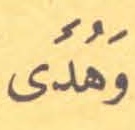 وَهُدًى